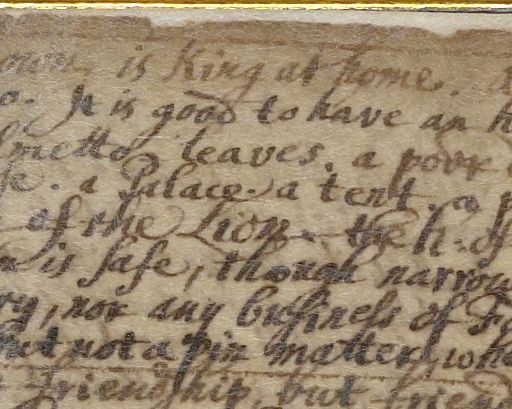 is King at home.
o. It is good to have an h
lmetto leaves. a poor
se. a Palace. a tent. a p
of the Lion. the h. of
is safe, though narrow
ry, nor any business of F
but not a pin matter, whe
Friendship, but friend